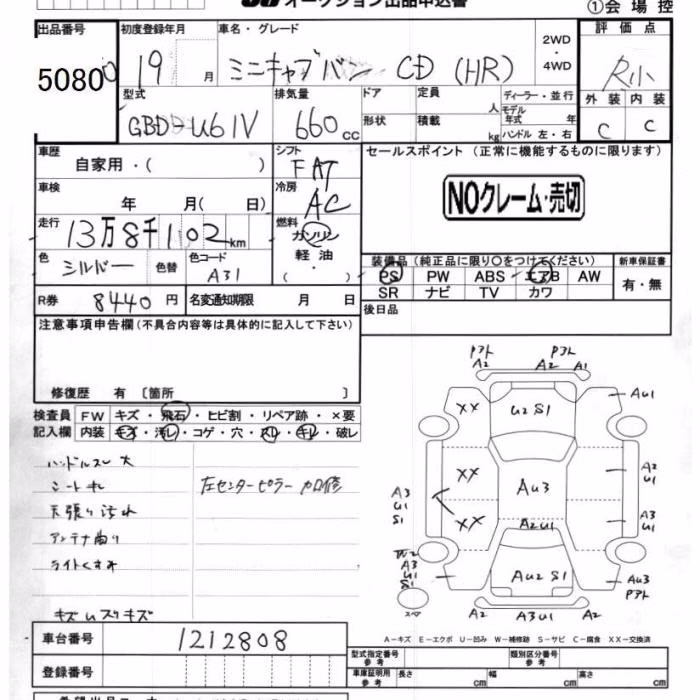 オークション出品申込書
①会場控
出品番号 初度登録年月 車名・グレード 評価点
50800 19 月 ミニキャブバン CD (HR) 2WD ・ 4WD R小
型式 排気量 ドア 定員 ディーラー・並行 外装 内装
GBD-U61V 660cc 人 モデル年式 年 C C
形状 積載 kg ハンドル 左・右
車歴 シフト セールスポイント (正常に機能するものに限ります)
自家用・( ) FAT
車検 冷房 NOクレーム・売切
年 月( 日) AC
走行 燃料
13万8千102km ガソリン
軽油
( ・ )
色 色替 色コード
シルバー A31
装備品(純正品に限り○をつけてください) 新車保証書
PS PW ABS エアB AW 有・無
SR ナビ TV カワ
R券 8440円 名変通知期限 月 日
後日品
注意事項申告欄(不具合内容等は具体的に記入して下さい)
修復歴 有 〔箇所 〕
検査員 FW キズ・飛石・ヒビ割・リペア跡・×要
記入欄 内装 キズ・汚レ・コゲ・穴・スレ・キレ・破レ
ハンドルスレ 大
シートキレ 左センターピラー カロ修
天張り汚れ
アンテナ曲り
ライトくすみ
キズUスリキズ
P外 P外
A2 A2 A1
XX U2 S1 AU1
XX AU3 A2 U1
A3 U1 S1
XX A2U1 A3 S1
A3 U1 S1 AU2 S1 AU3 P外
スペア A2 A3U1 A2
A-キズ E-エクボ U-凹み W-補修跡 S-サビ C-腐食 XX-交換済
車台番号 1212808
登録番号
型式指定番号 参考 類別区分番号 参考
車庫証明用 参考 長さ cm 幅 cm 高さ cm